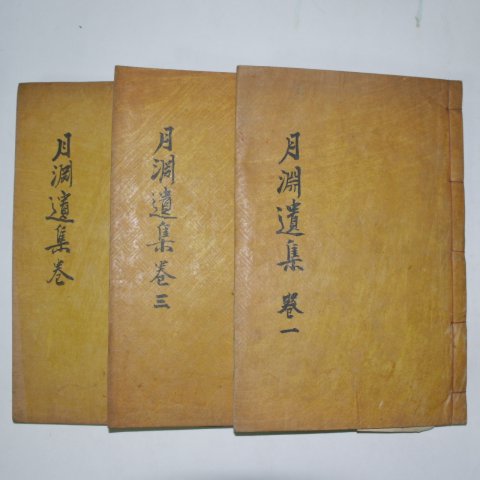 月淵遺集 卷一
月淵遺集 卷三
月淵遺集 卷